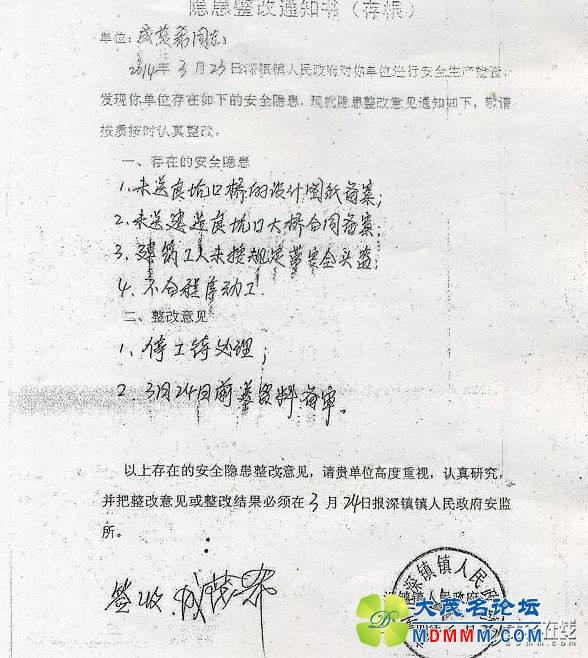 隐患整改通知书（存根）
单位：成茂希同志：
2014年3月23日深镇镇人民政府对你单位进行安全生产检验，
发现你单位存在如下的安全隐患，现就隐患整改意见通知如下，敬请
按质按时认真整改。
一、存在的安全隐患
1、未送良坑口桥的设计图纸备案；
2、未送建造良坑口大桥合同备案；
3、建筑工人未按规定带安全头盔；
4、不合程序动工.
二、整改意见
1、停工待处理；
2、3月24日前资料备审。
以上存在的安全隐患整改意见，请贵单位高度重视，认真研究，
并把整改意见或整改结果必须在3月24日报深镇镇人民政府安监
所。
签收：成茂
深镇镇人民
深镇镇人民政府
大茂名论坛
MDMMM.COM
在线